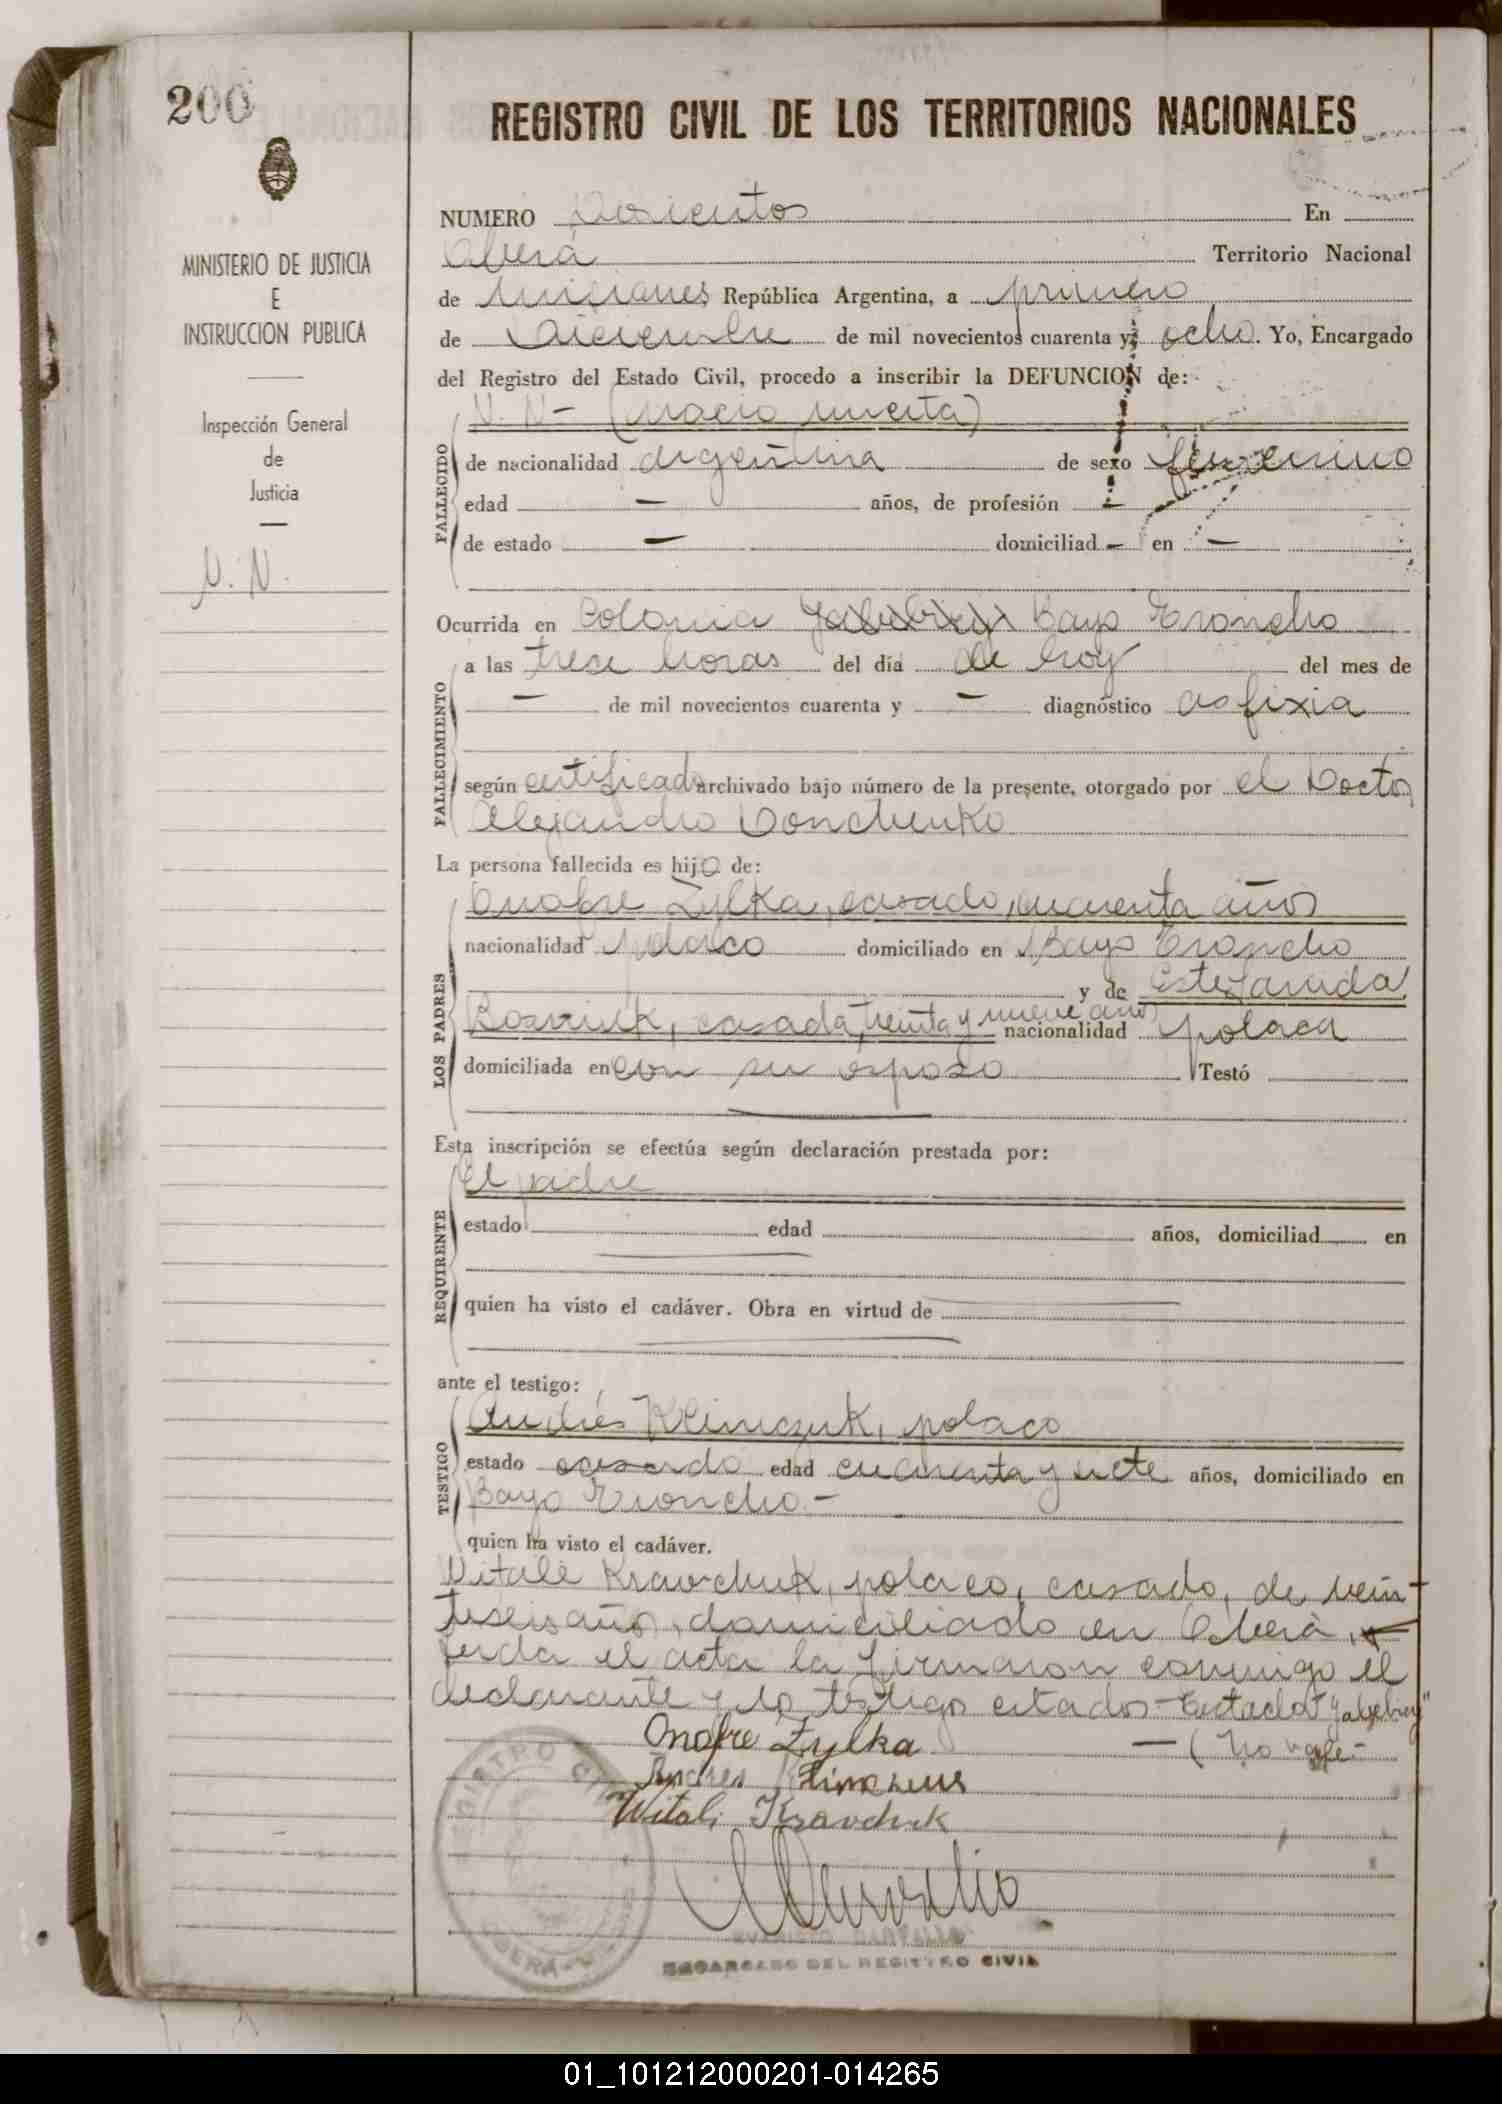 200
REGISTRO CIVIL DE LOS TERRITORIOS NACIONALES
MINISTERIO DE JUSTICIA
E
INSTRUCCION PUBLICA
Inspección General
de
Justicia
N. N.
NUMERO Doscientos En
Oberá Territorio Nacional
de Misiones República Argentina, a primero
de Diciembre de mil novecientos cuarenta y ocho. Yo, Encargado
del Registro del Estado Civil, procedo a inscribir la DEFUNCION de:
N. N- (Nacio muerta)
FALLECIDO
de nacionalidad argentina de sexo femenino
edad — años, de profesión —
de estado — domiciliad — en —
Ocurrida en Colonia Yabebiry Bayo Troncho
FALLECIMIENTO
a las trece horas del día de hoy del mes de
— de mil novecientos cuarenta y — diagnóstico asfixia
según certificado archivado bajo número de la presente, otorgado por el Doctor
Alejandro Donchenko
La persona fallecida es hija de:
LOS PADRES
Onofre Zylka, casado, cuarenta años
nacionalidad polaco domiciliado en Bayo Troncho
y de Estefanida
casada, treinta y nueve años nacionalidad polaca
domiciliada en con su esposo Testó
Esta inscripción se efectúa según declaración prestada por:
El padre
REQUIRENTE
estado edad años, domiciliad en
quien ha visto el cadáver. Obra en virtud de
ante el testigo:
TESTIGO
Andrés Klimczuk, polaco
estado casado edad cuarenta y siete años, domiciliado en
Bayo Troncho.-
quien ha visto el cadáver.
Witale Krawchuk, polaco, casado, de vein-
tiseis años, domiciliado en Oberá,
Leida el acta la firmaron conmigo el
declarante y los testigos citados- Testado "Yabebiry"
— (No vale-
Onofre Zylka
Andres Klimczuk
Witali Kravchuk
REGISTRO CIVIL
OBERA
ENCARGADO DEL REGISTRO CIVIL
01_101212000201-014265